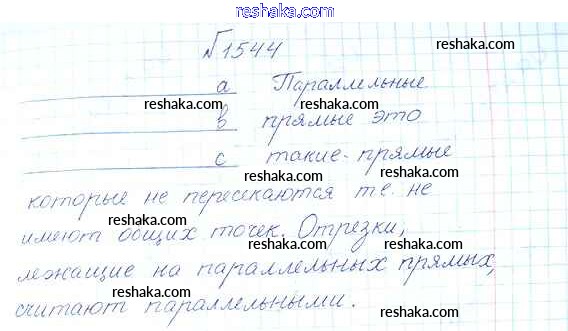 reshaka.com
№1544
reshaka.com
a Параллельные
reshaka.com reshaka.com
в прямые это
reshaka.com reshaka.com
с такие-прямые
reshaka.com reshaka.com
которые не пересекаются те. не
reshaka.com reshaka.com
имеют общих точек. Отрезки,
reshaka.com
лежащие на параллельных прямых,
reshaka.com reshaka.com
считают параллельными.
reshaka.com